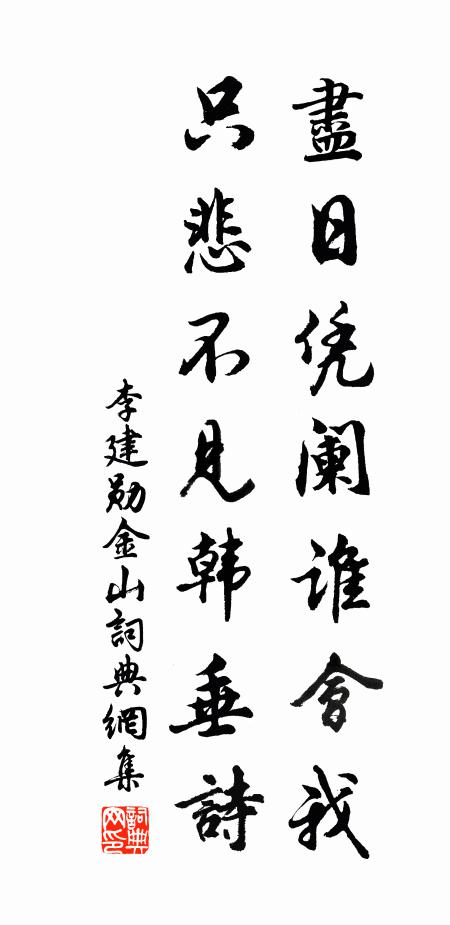 盡日凭阑誰會我
只悲不見韩垂詩
李建勋金山詞典網集
詞典網印